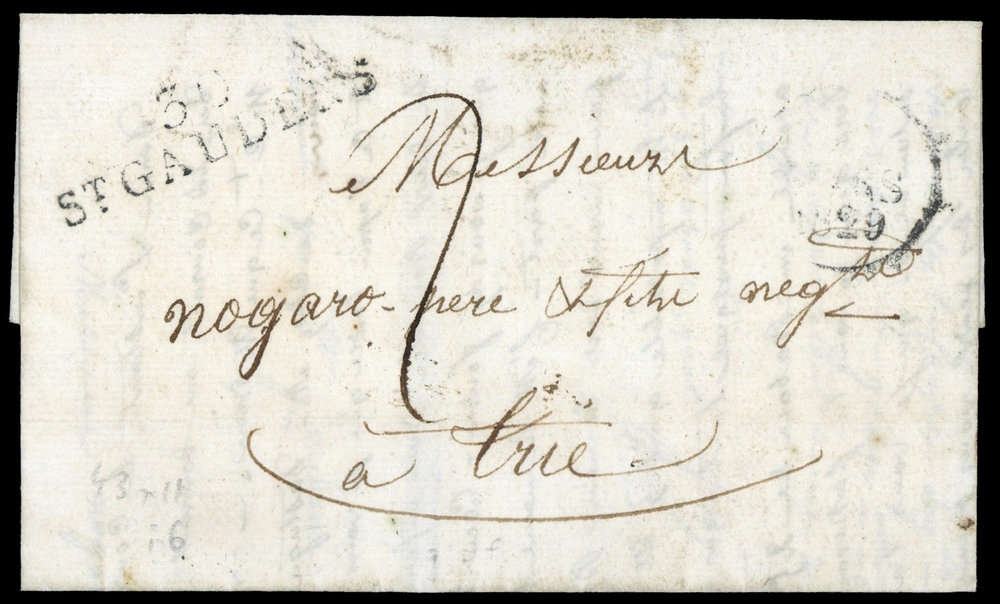 30
ST GAUDENS
Messieurs
1829
nogaro pere & fils negts
à trie
2